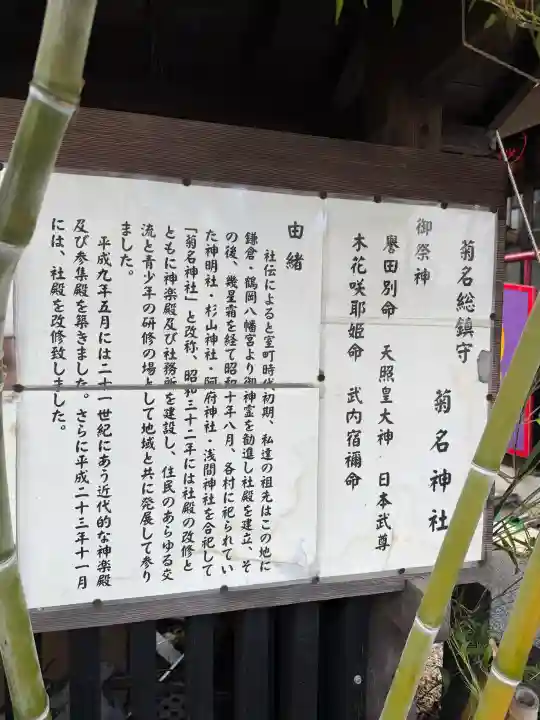 菊名総鎮守
菊名神社
御祭神
誉田別命 天照皇大神 日本武尊
木花咲耶姫命 武内宿禰命
由緒
社伝によると室町時代初期、私達の祖先はこの地に
鎌倉・鶴岡八幡宮より御神霊を勧進し社殿を建立、そ
の後、幾星霜を経て昭和十年八月、各村に祀られてい
た神明社・杉山神社・阿府神社・浅間神社を合祀して
「菊名神社」と改称、昭和三十二年には社殿の改修と
ともに神楽殿及び社務所を建設し、住民のあらゆる交
流と青少年の研修の場として地域と共に発展して参り
ました。
平成九年五月には二十一世紀にあう近代的な神楽殿
及び参集殿を築きました。さらに平成二十三年十一月
には、社殿を改修致しました。